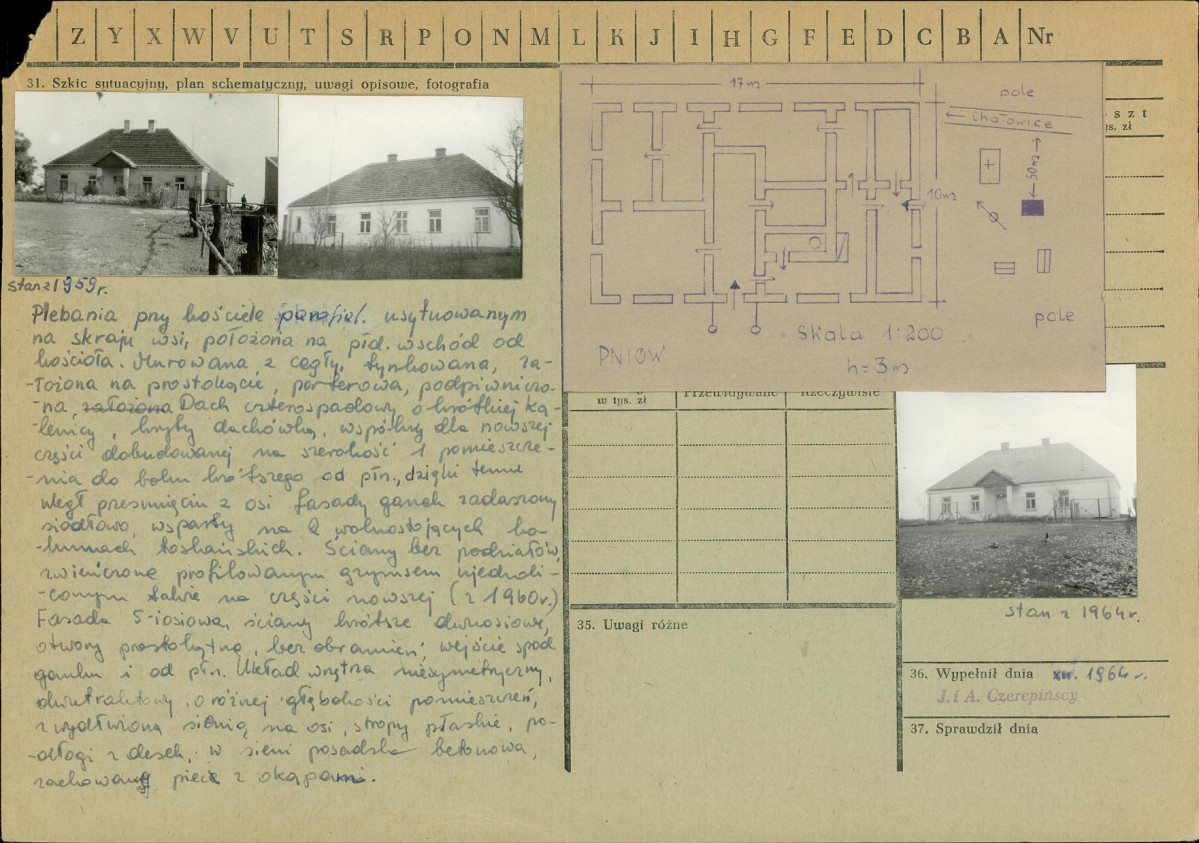 Z Y X W V U T S R P O N M L K J I H G F E D C B A Nr
31. Szkic sytuacyjny, plan schematyczny, uwagi opisowe, fotografia
stan z 1959 r.
Plebania przy kościele parafial. usytuowanym
na skraju wsi, położona na płd. wschód od
kościoła. Murowana z cegły, tynkowana, za-
-łożona na prostokącie, parterowa, podpiwniczo-
-na, założona Dach czterospadowy o krótkiej ka-
lenicy, kryty dachówką, wspólny dla nowszej
części dobudowanej na szerokość 1 pomieszcze-
-nia do boku krótszego od płn., dzięki temu
uległ przesunięciu z osi fasady ganek zadaszony
siodłowo, wsparty na 2 wolnostojących ko-
-lumnach toskańskich. Ściany bez podziałów,
zwieńczone profilowanym gzymsem ujednoli-
-conym także na części nowszej (z 1960r.)
Fasada 5-iosiowa, ściany krótsze dwuosiowe,
otwory prostokątne, bez obramień, wejście spod
ganku i od płn. Układ wnętrza niesymetryczny,
dwutraktowy, o różnej głębokości pomieszczeń,
z wydłużoną sienią na osi, stropy płaskie, po-
-dłogi z desek, w sieni posadzka betonowa,
zachowany piec z okapami.
17 m
10 m
pole
Chotowice
50 m
pole
Skala 1:200
h = 3 m
PNIÓW
oszt
ys. zł
w tys. zł
Przewidywane
Rzeczywiste
stan z 1964 r.
35. Uwagi różne
36. Wypełnił dnia XII. 1964 r.
J. i A. Czerepińscy
37. Sprawdził dnia